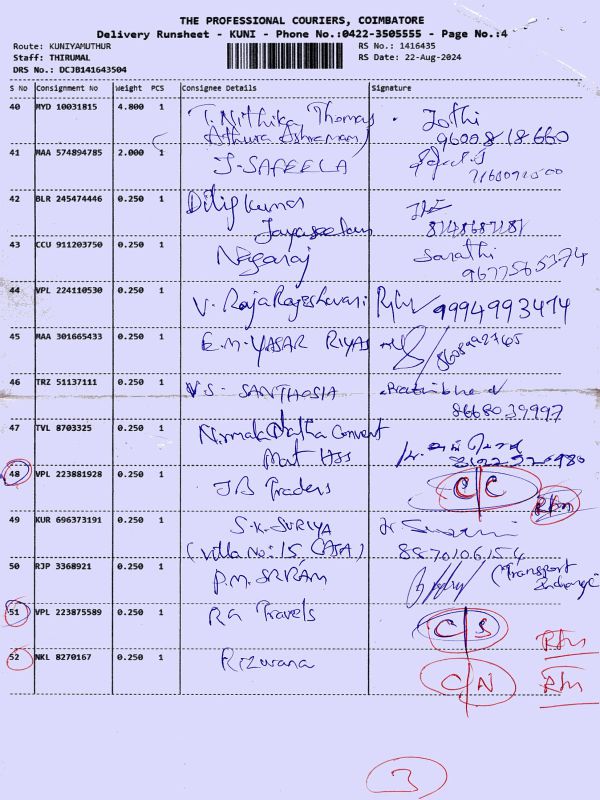 THE PROFESSIONAL COURIERS, COIMBATORE
Delivery Runsheet - KUNI - Phone No.:0422-3505555 - Page No.:4
Route: KUNIYAMUTHUR RS No.: 1416435
Staff: THIRUMAL RS Date: 22-Aug-2024
DRS No.: DCJB141643504
S No Consignment No Weight PCS Consignee Details Signature
40 MYD 10031815 4.800 1 T. Nithika Thomas Jothi
Athura Ashramam) 9600818660
41 MAA 574894785 2.000 1 J-SAFEELA
42 BLR 245474446 0.250 1 Dilip kumar
Jayaseelan
43 CCU 911203750 0.250 1 Nagaraj Sarathi
9677565374
44 VPL 224110530 0.250 1 V. RajaRajeshwari 9994993474
45 MAA 301665433 0.250 1 E.M. YASAR RIYAS
46 TRZ 51137111 0.250 1 V.S. SANTHOSIA
8668039997
47 TVL 8703325 0.250 1 Nirmala Matha Convent
Mat HSS
48 VPL 223881928 0.250 1 JB Traders C C
Rtn
49 KUR 696373191 0.250 1 S.K. SURIYA
(Villa No: 15 CASA) 8870106154
50 RJP 3368921 0.250 1 P.M. SRIRAM (Transport
Exchange)
51 VPL 223875589 0.250 1 RG Travels C S Rtn
52 NKL 8270167 0.250 1 Rizwana C N Rtn
3